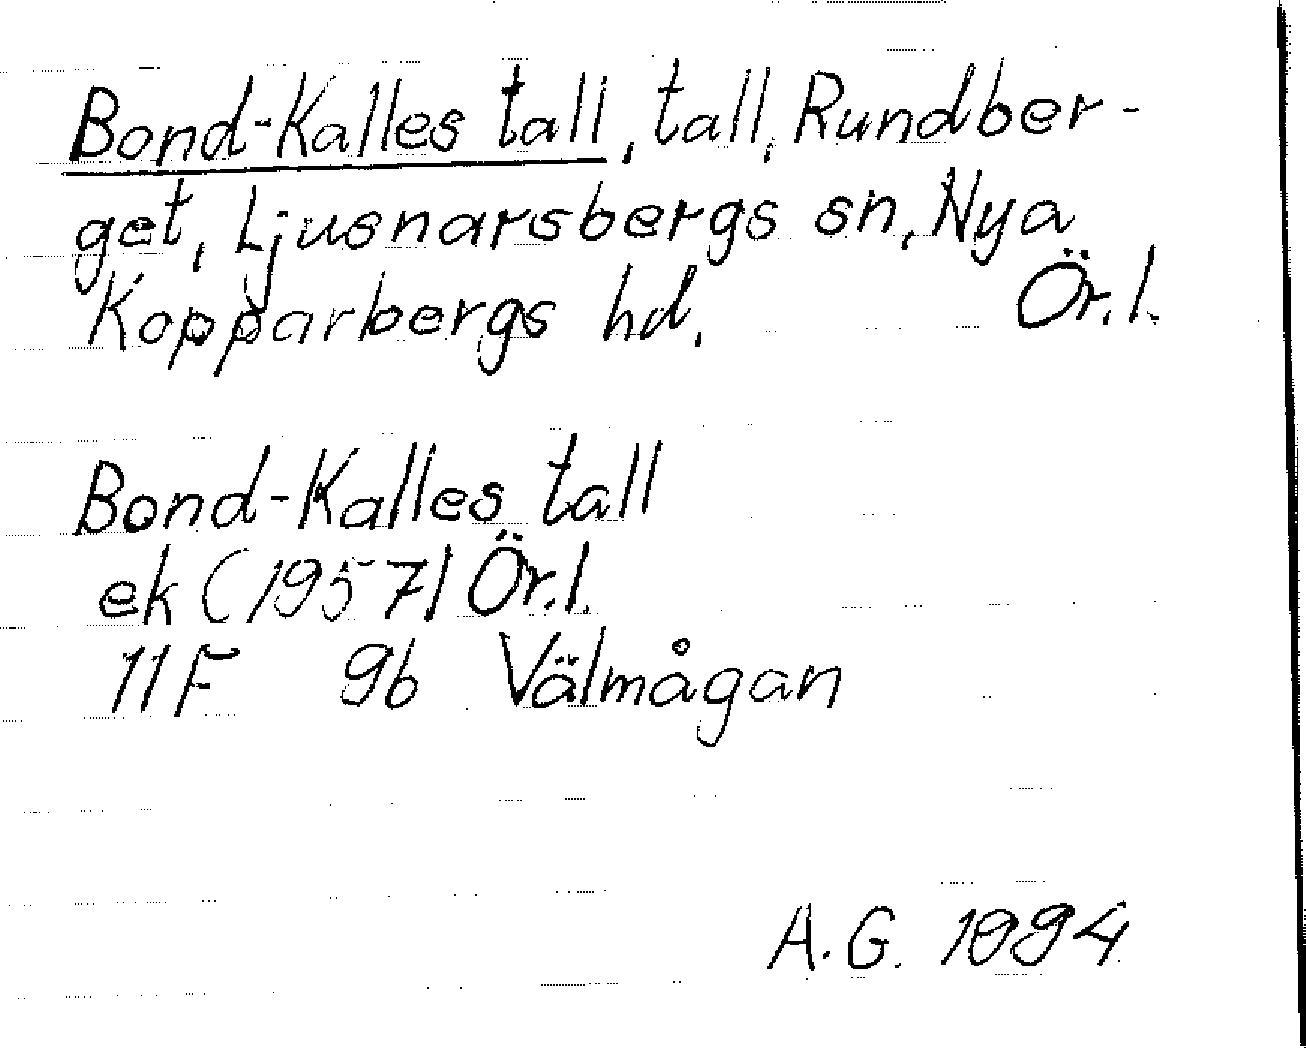 Bond-Kalles tall, tall, Rundber-
get, Ljusnarsbergs sn, Nya
Kopparbergs hd. Ör.l.
Bond-Kalles tall
ek (1957) Ör.l.
11F 9b Välmågan
A.G. 1994